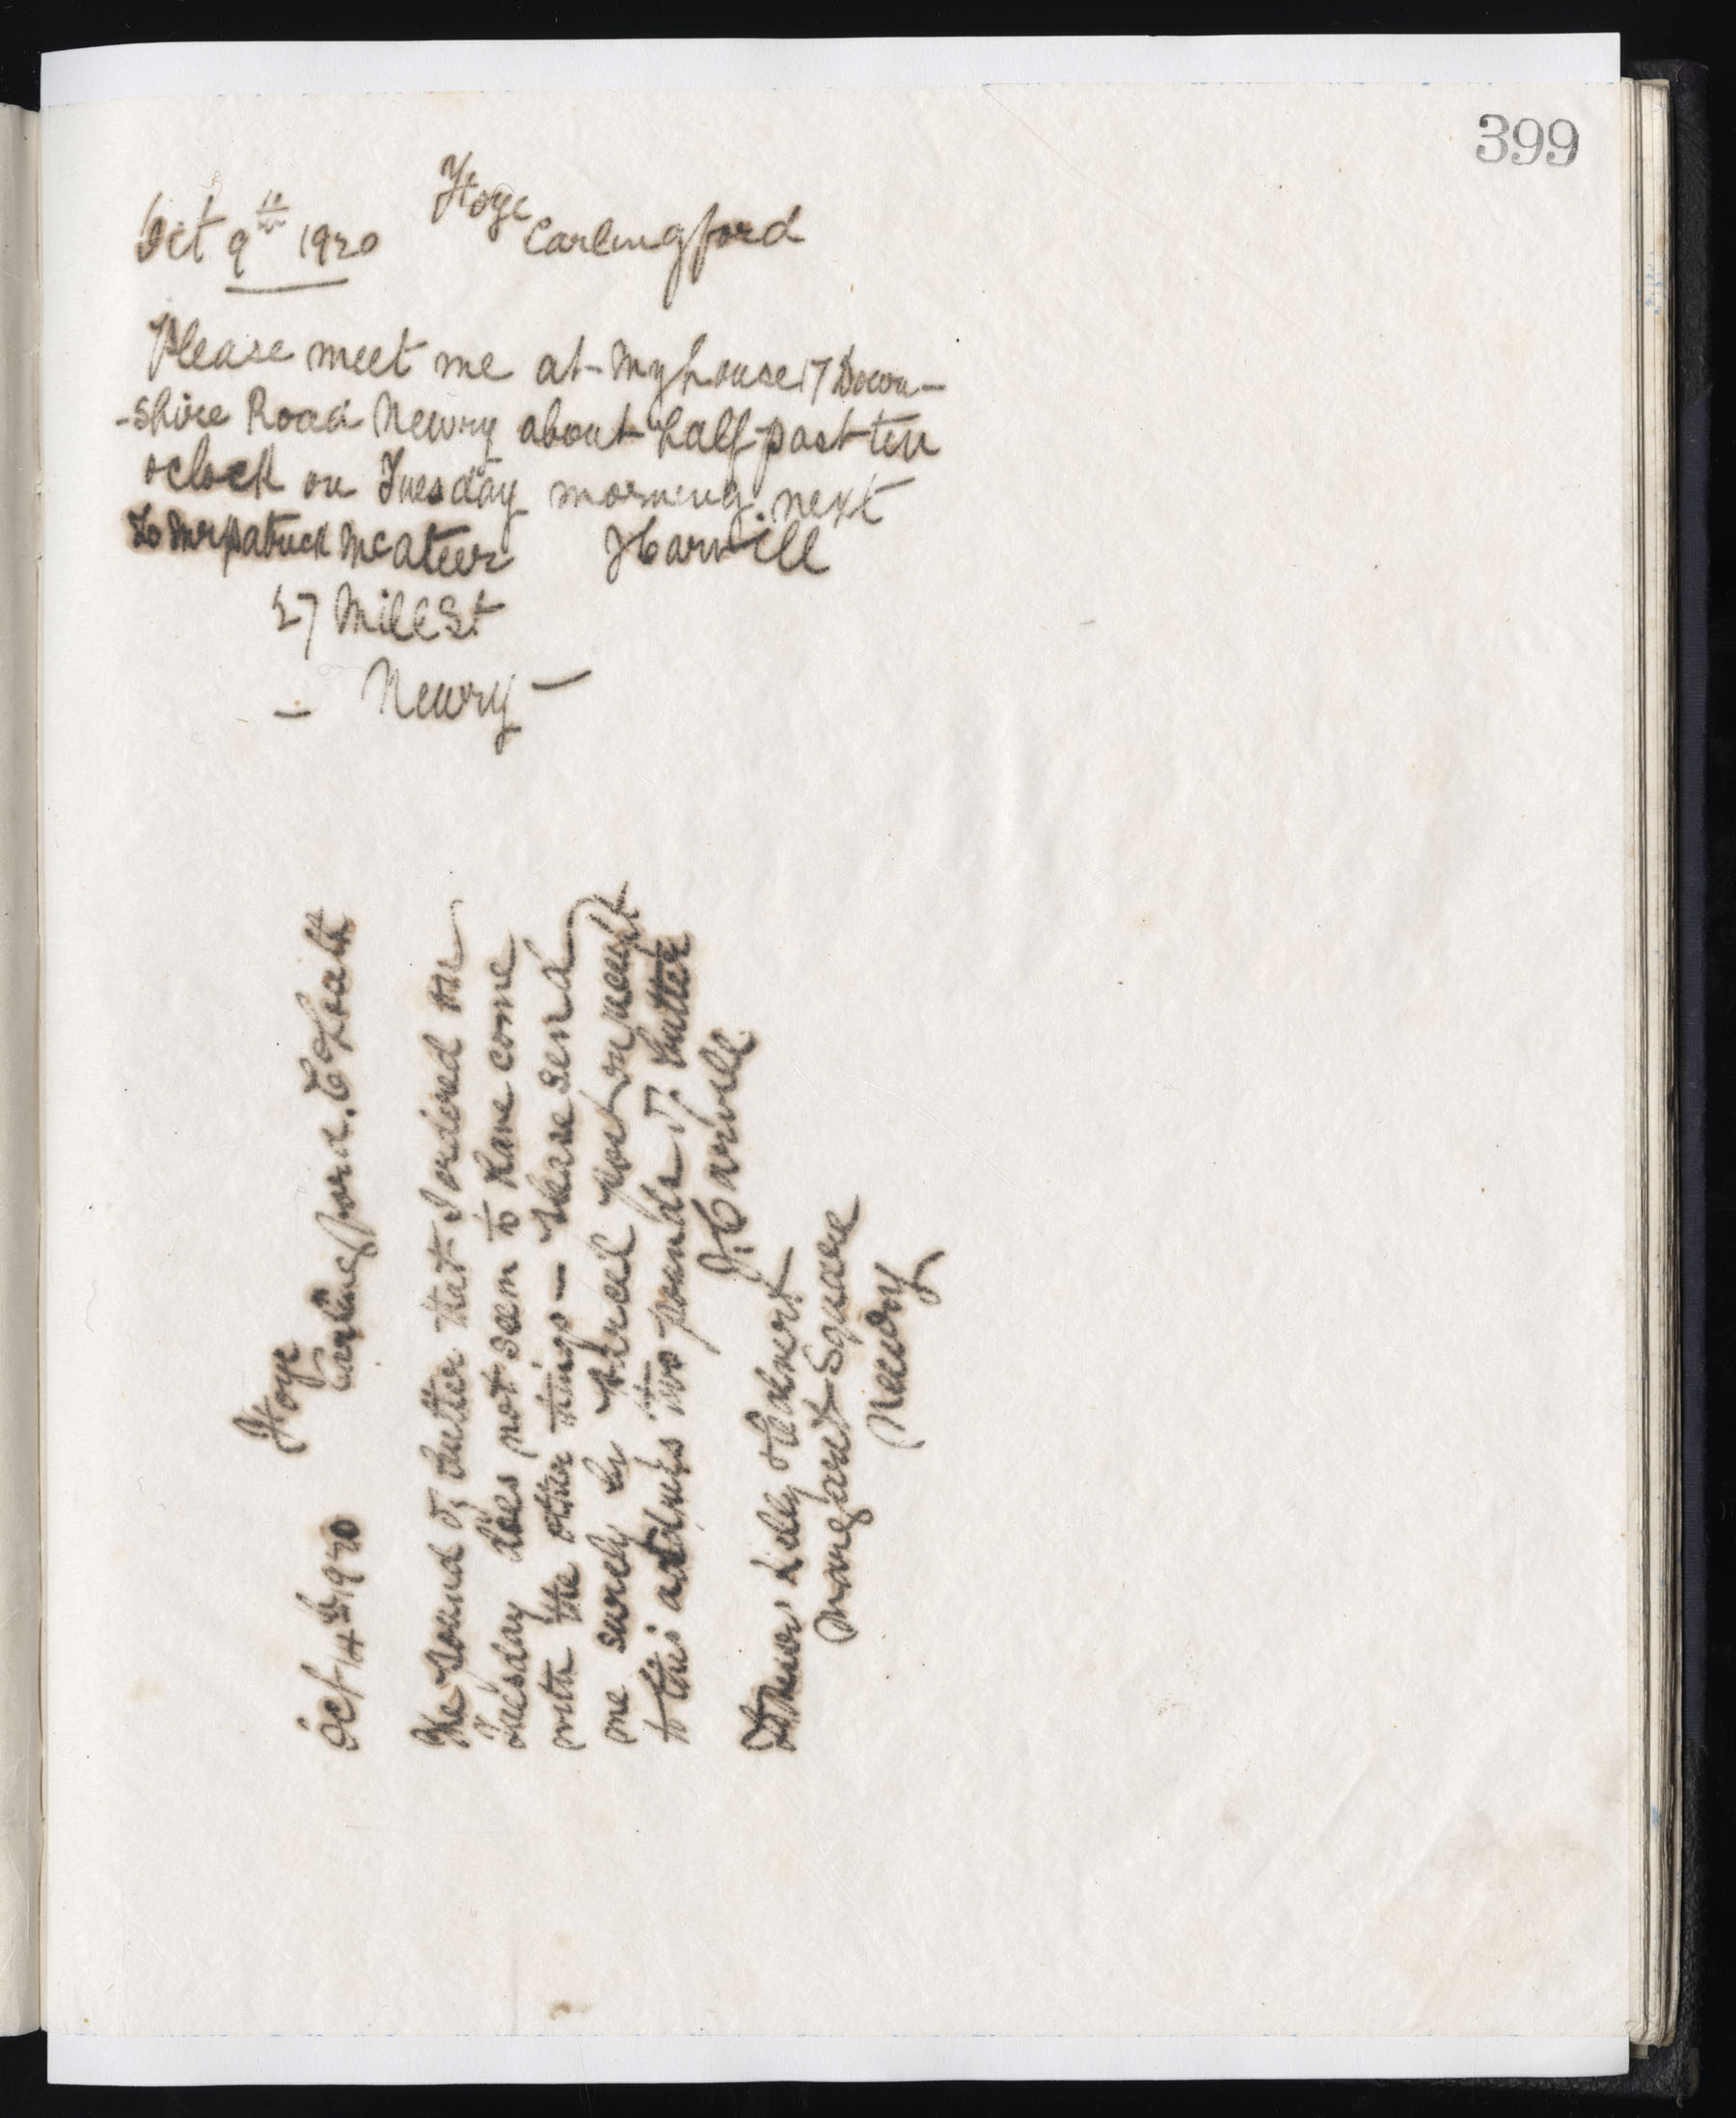 399
Oct 9th 1920 Ffoye
Carlingford
Please meet me at my house 17 Down-
-shire Road Newry about half past ten
oclock on Tuesday morning next
To Mr Patrick McAteer JCarvill
27 Mill St
- Newry -
Oct 14th 1920
Carlingford. Co Louth
The pound of butter that I ordered on
Tuesday does not seem to have come
with the other things - Please send
me surely by parcel post on receipt
to this address two pounds of butter
JCarvill
To Messrs
Margaret Square
Newry